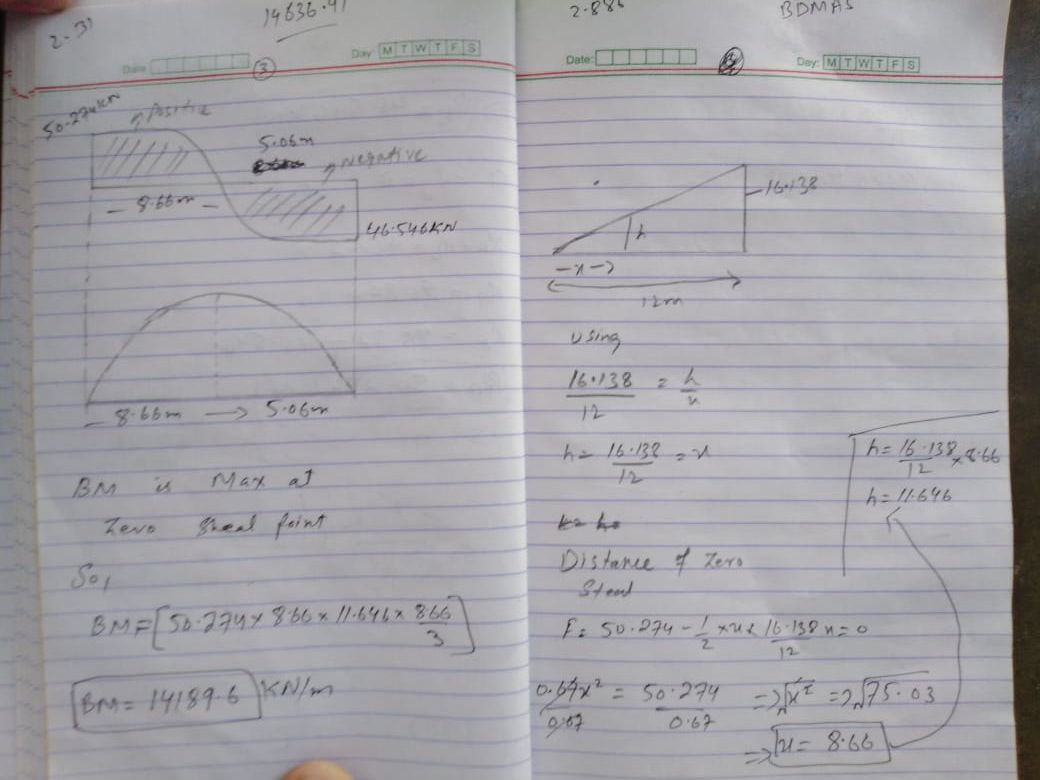 2.31
14636.41
Date
3
Day: M T W T F S
50.274KN
Positive
5.06m
Negative
8.66m
46.546KN
8.66m → 5.06m
BM is Max at
Zero Sheal point
So,
BM=[50.274×8.66×11.646×8.66/3]
BM= 14189.6 KN/m
2.886
BDMAS
Date:
Day: M T W T F S
16.138
h
-x→
12m
Using
16.138/12 = h/x
h= 16.138/12 =x
h=16.138/12×8.66
h=11.646
Distance of Zero
F= 50.274-1/2×x×16.138/12 x=0
0.67x²/0.67 = 50.274/0.67 ⇒√x² =>√75.03
⇒ x= 8.66